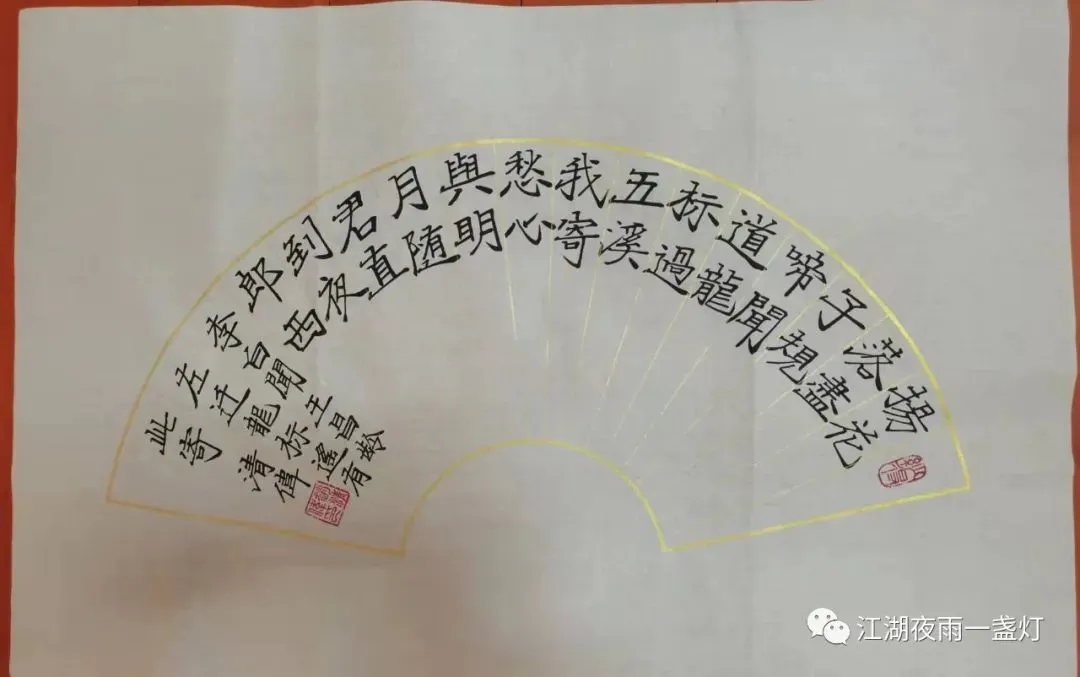 揚花
落盡
子規
啼聞
道龍
标過
五溪
我寄
愁心
與明
月随
君直
到夜
郎西
李白聞王昌龄
左迁龍标遙有
此寄 清偉
江湖夜雨一盏灯